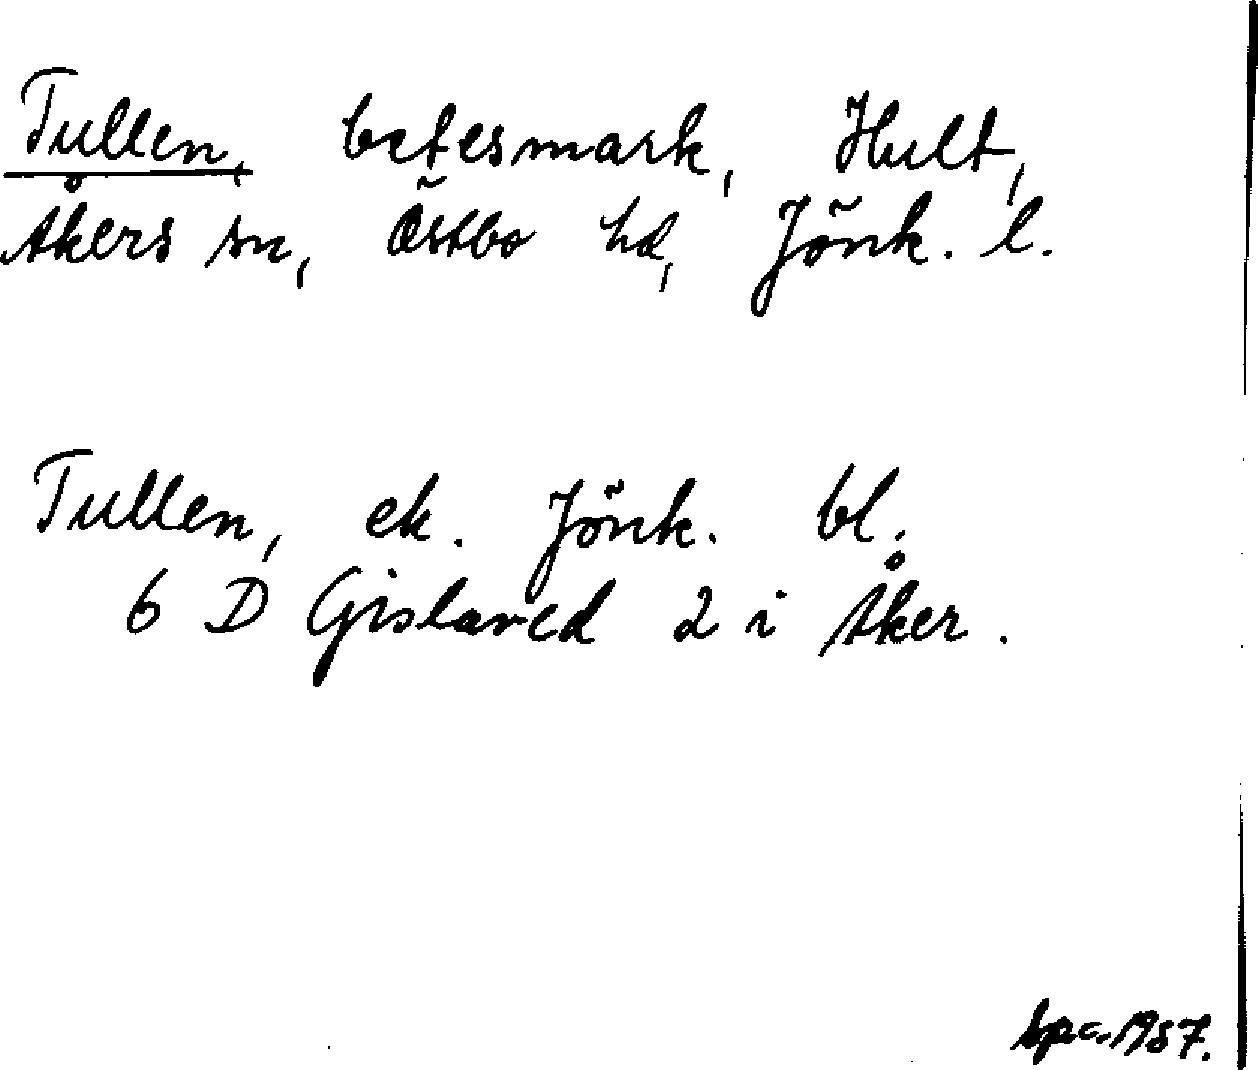 Tullen, betesmark, Hult,
Åkers sn, Östbo hd, Jönk. l.
Tullen, ek. Jönk. bl.
6 D Gislaved 2 i Åker.
1987.